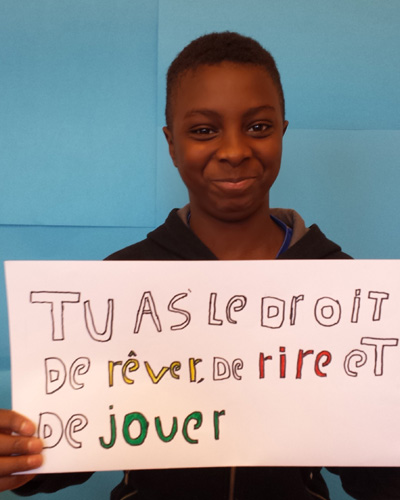 TU AS LE DROIT
DE rêver, DE rire eT
De jouer